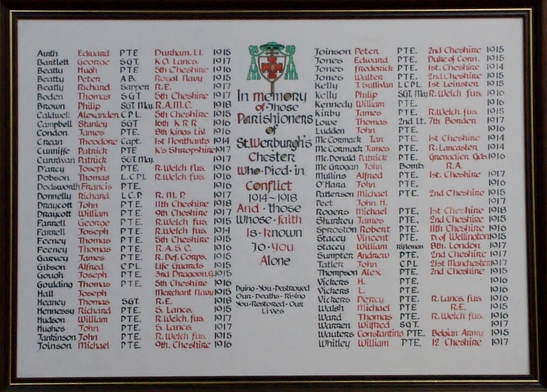 Auth Edward PTE Durham. L.I. 1915
Bartlett George SGT. K.O. Lancs. 1917
Beatty Hugh PTE 5th Cheshire 1916
Beatty Peter A.B. Royal Navy 1915
Beatty Richard Sapper R.E. 1917
Boden Thomas SGT 5th Cheshire 1917
Brown Philip SGT.Maj. R.A.M.C. 1918
Caldwell Alexander CPL 5th Cheshire 1915
Campbell Stanley SGT 16th K.R.R. 1916
Condon James PTE 8th Kings List 1916
Crean Theodore Capt. 1st Northants 1914
Cunniffe Patrick PTE K's Shropshire 1917
Curnivan Patrick SGT.Maj. 1917
D'arcy Joseph PTE R.Welch fus 1916
Dobson Thomas L.CPL R.Welch fus. 1916
Dodsworth Francis PTE 1916
Donnelly Richard L.C.P. R.M.P. 1917
Draycott John PTE 11th Cheshire 1918
Draycott William PTE 9th Cheshire 1917
Farrell George PTE R.Welch fus 1915
Farrell Joseph PTE R.Welch fus 1914
Feeney Thomas PTE 5th Cheshire 1915
Feeney Thomas PTE R.A.S.C. 1916
Garvey James PTE R. Def. Corps. 1915
Gibson Alfred CPL Life Guards 1915
Gough Joseph PTE 2nd Dragoon.G. 1915
Goulding Thomas PTE 5th Cheshire 1916
Hall Joseph Merchant Navy 1915
Heaney Thomas SGT R.E. 1918
Hennessy Richard PTE S. Lancs 1915
Hudson William PTE R.Welch fus 1917
Hughes John PTE S. Lancs 1917
Jankinson John PTE R.Welch fus 1915
Joinson Michael PTE 9th. Cheshire 1916
In memory
of those
Parishioners
of
St. Werburgh's
Chester
Who Died in
Conflict
1914~1918
And those
Whose faith
Is Known
To You
Alone
Dying You Destroyed
Our Death: Rising
You Restored Our
Lives
Joinson Peter PTE. 2nd Cheshire 1915
Jones Edward PTE Duke of Corn. 1915
Jones Frederick PTE 1st Cheshire 1914
Jones Walter PTE 2nd Cheshire 1915
Kelly T.Sullivan L.CPL 1st Leinster 1915
Kelly Philip SGT.Maj R.Welch fus 1916
Kennedy William PTE. 1916
Kirby James PTE R.Welch fus 1915
Lowe Thomas 2nd Lt. 7th Border 1917
Ludden John PTE 1916
Mc Cormack Ian PTE 1st Cheshire 1914
Mc Cormack James PTE R. Lancashire 1914
Mc Donald Patrick PTE Grenadier Gds 1916
Mc Grogan John Bomb R.A.
Mullins Alfred PTE 1st. Cheshire 1917
O'Hara John PTE 1916
Patterson Michael PTE 2nd Cheshire 1915
Peet John H. 1917
Rogers Michael PTE 1st Cheshire 1918
Sharkey James PTE 2nd Cheshire 1916
Sproston Robert PTE 11th Cheshire 1916
Stacey Vincent PTE D. of Wellington 1915
Stacey William Rifleman 8th. London 1917
Sumpter Andrew PTE 2nd Cheshire 1917
Tatler John CPL 21st Manchester 1917
Thompson Alex PTE 2nd Cheshire 1915
Vickers H. PTE 1916
Vickers L. PTE 1916
Vickers Percy PTE R. Lancs fus. 1916
Walsh Michael PTE R.E. 1915
Ward Thomas PTE R.Welch fus 1916
Warren Wilfred SGT. 1917
Wauters Constantins PTE. Belgian Army 1915
Whitley William PTE 12 Cheshire 1917